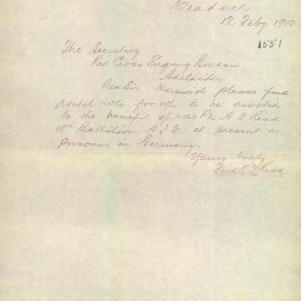 Cradock
12 Feby 1918
1551
The Secretary
Red Cross Enquiry Bureau
Adelaide
Dear Sir Herewith please find
postal note for 10/- to be devoted
to the benefit of Pte A O Read
Battalion A.I.F. at present a
prisoner in Germany.
Yours truly
Read